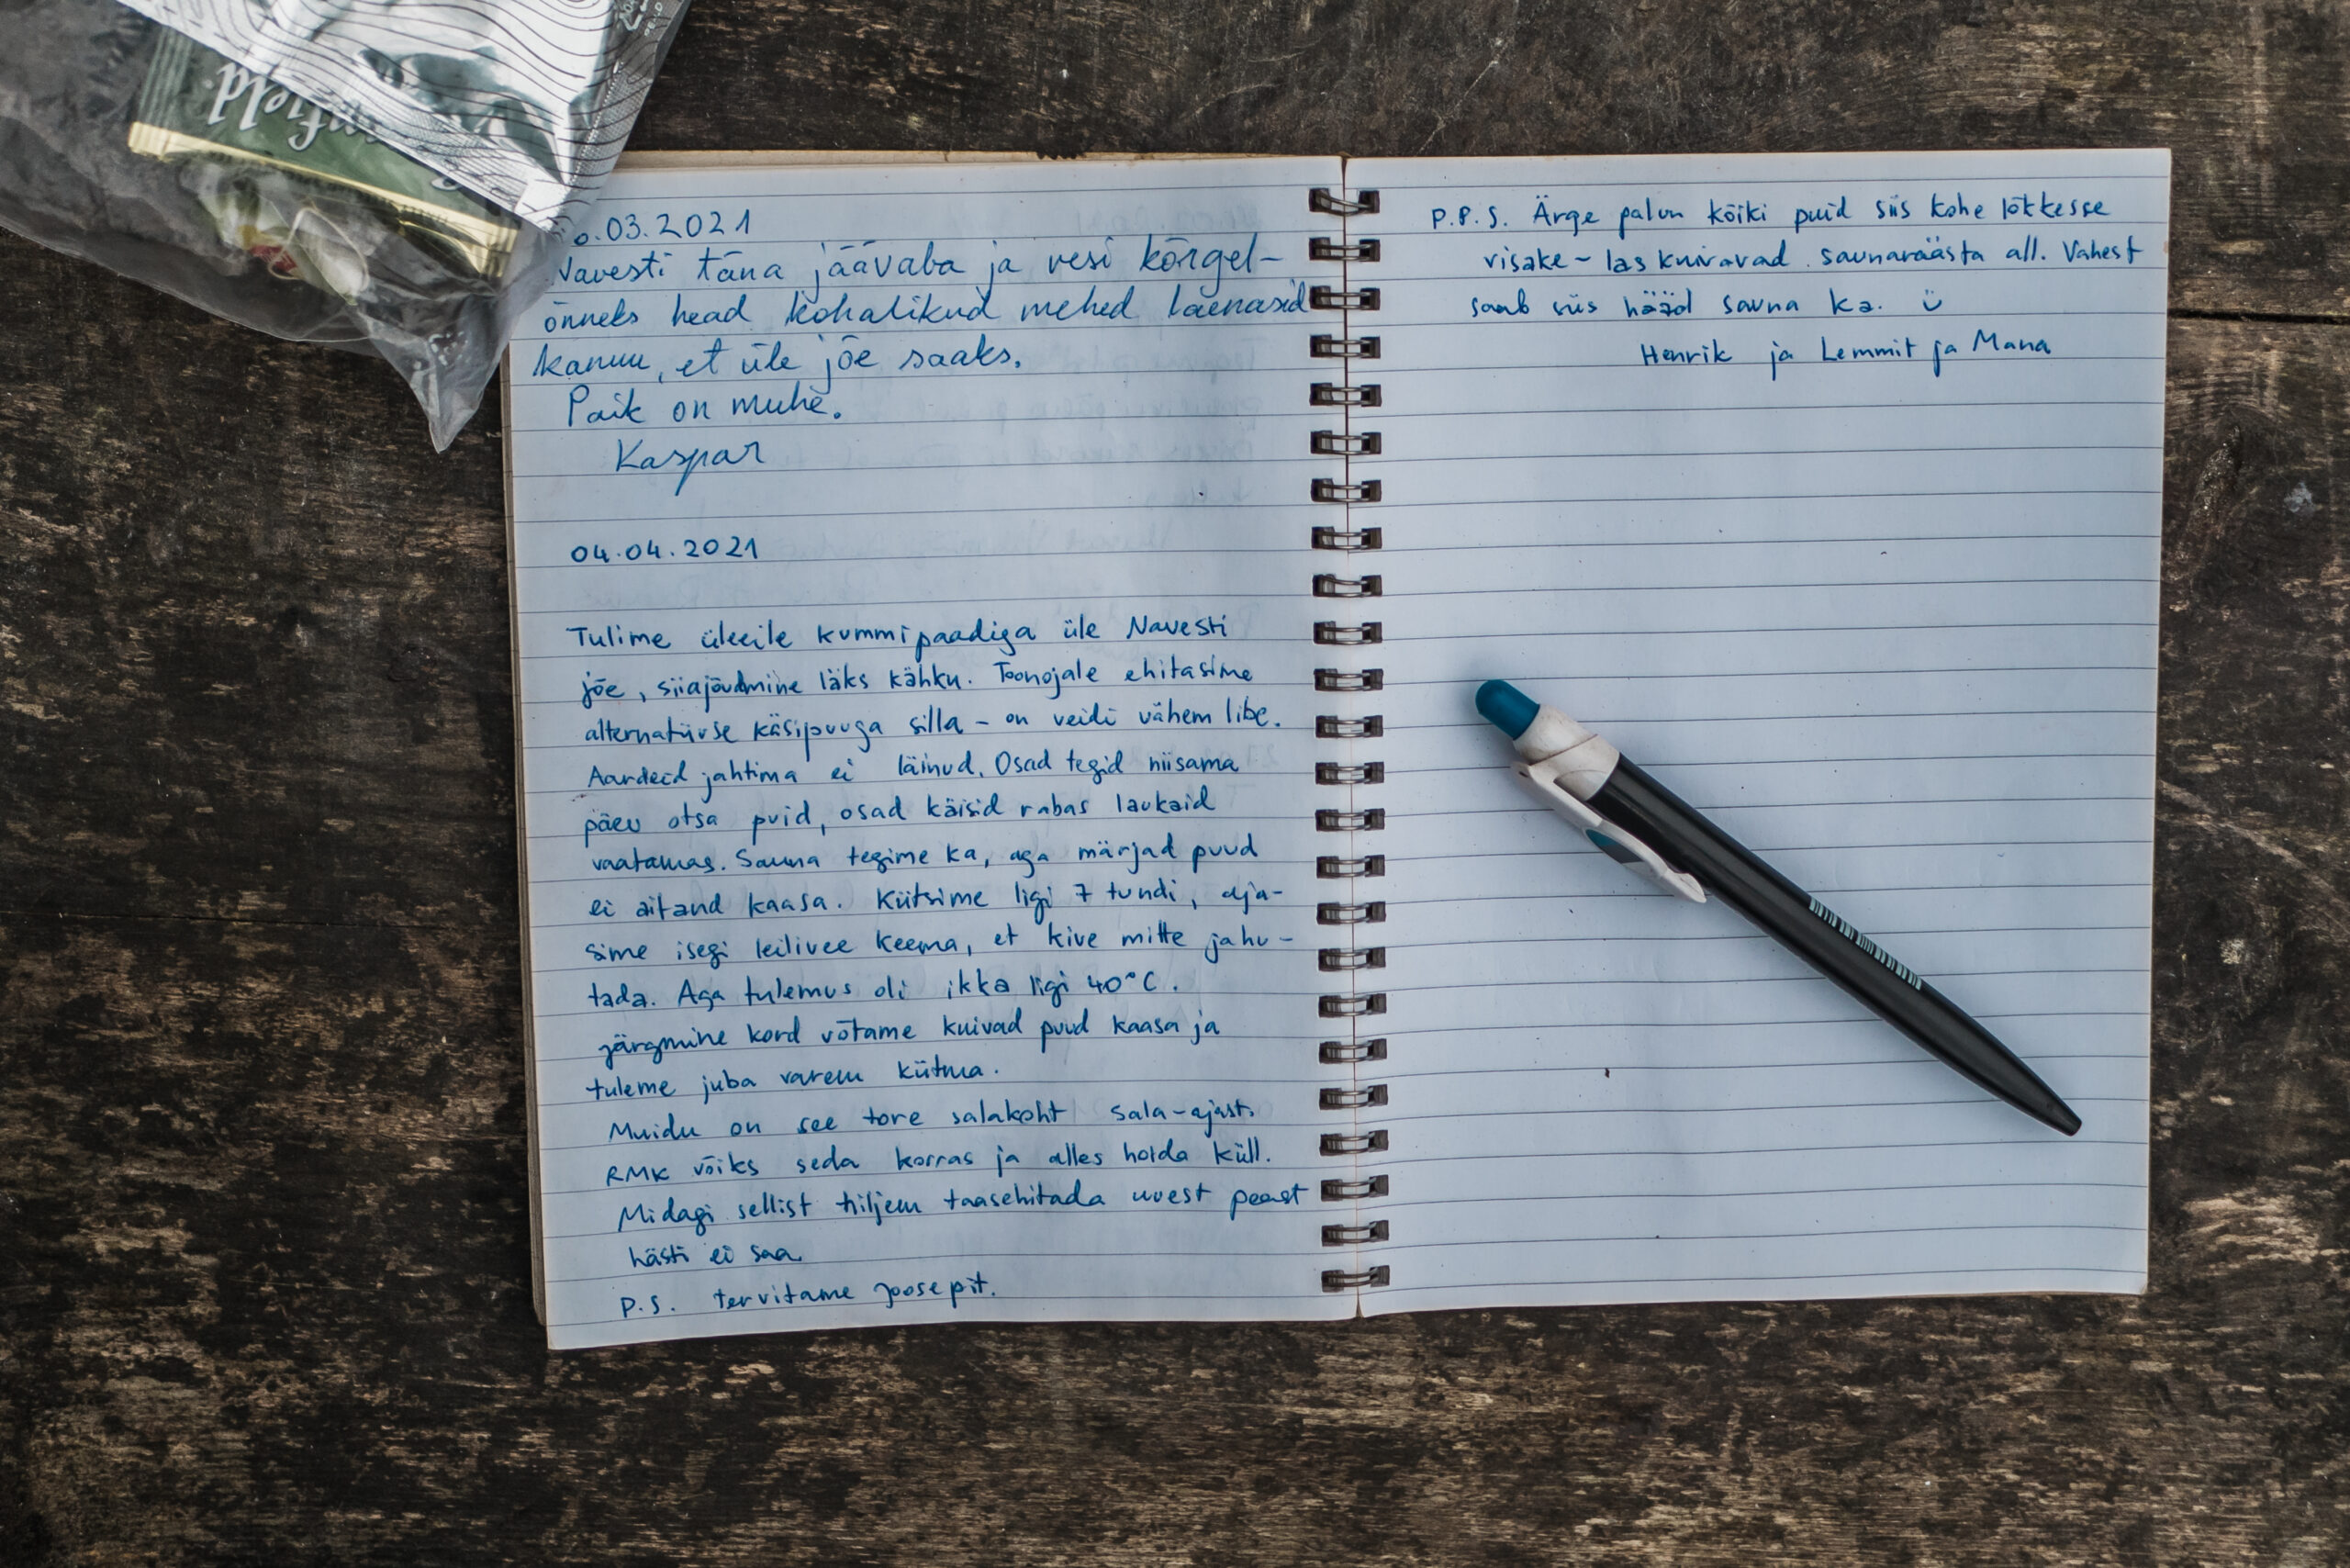 .03.2021
Navesti täna jäävaba ja vesi kõrgel-
õnneks head kohalikud mehed laenasid
kanuu, et üle jõe saaks.
Paik on muhe.
Kaspar
04.04.2021
Tulime ülleile kummipaadiga üle Navesti
jõe, siiajõudmine läks kähku. Toonojale ehitasime
alternatiivse käsipuuga silla - on veidi vähem libe.
Aardeid jahtima ei läinud. Osad tegid niisama
päev otsa puid, osad käisid rabas laukaid
vaatamas. Sauna tegime ka, aga märjad puud
ei aitand kaasa. Kütsime ligi 7 tundi, aja-
sime isegi leilivee keema, et kive mitte jahu-
tada. Aga tulemus oli ikka ligi 40°C.
järgmine kord võtame kuivad puud kaasa ja
tuleme juba varem kütma.
Muidu on see tore salakoht sala-ajast.
RMK võiks seda korras ja alles hoida küll.
Midagi sellist hiljem taasehitada uuest peast
hästi ei saa.
P.S. tervitame Joosepit.
P.P.S. Ärge palun kõiki puid siis kohe lõkkesse
visake - las kuivavad saunaräästa all. Vahest
saab siis hääd sauna ka. ü
Henrik ja Lemmit ja Mana